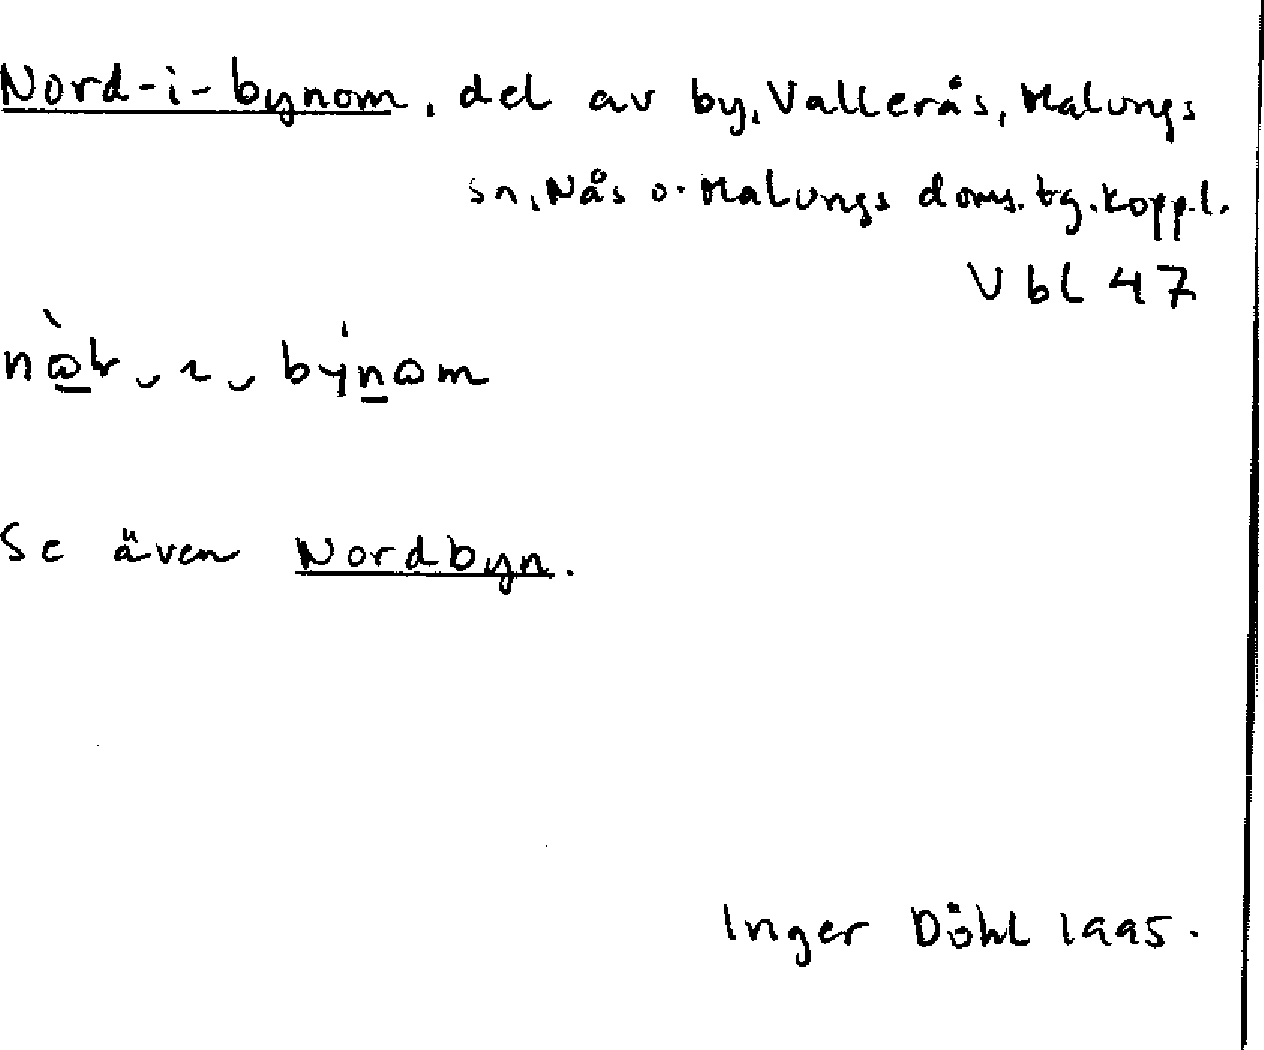 Nord-i-bynom, del av by, Vallerås, Malungs
sn, Nås o. Malungs doms. tg. koppl.
Vbl 47
Se även Nordbyn.
Inger Döhl 1995.